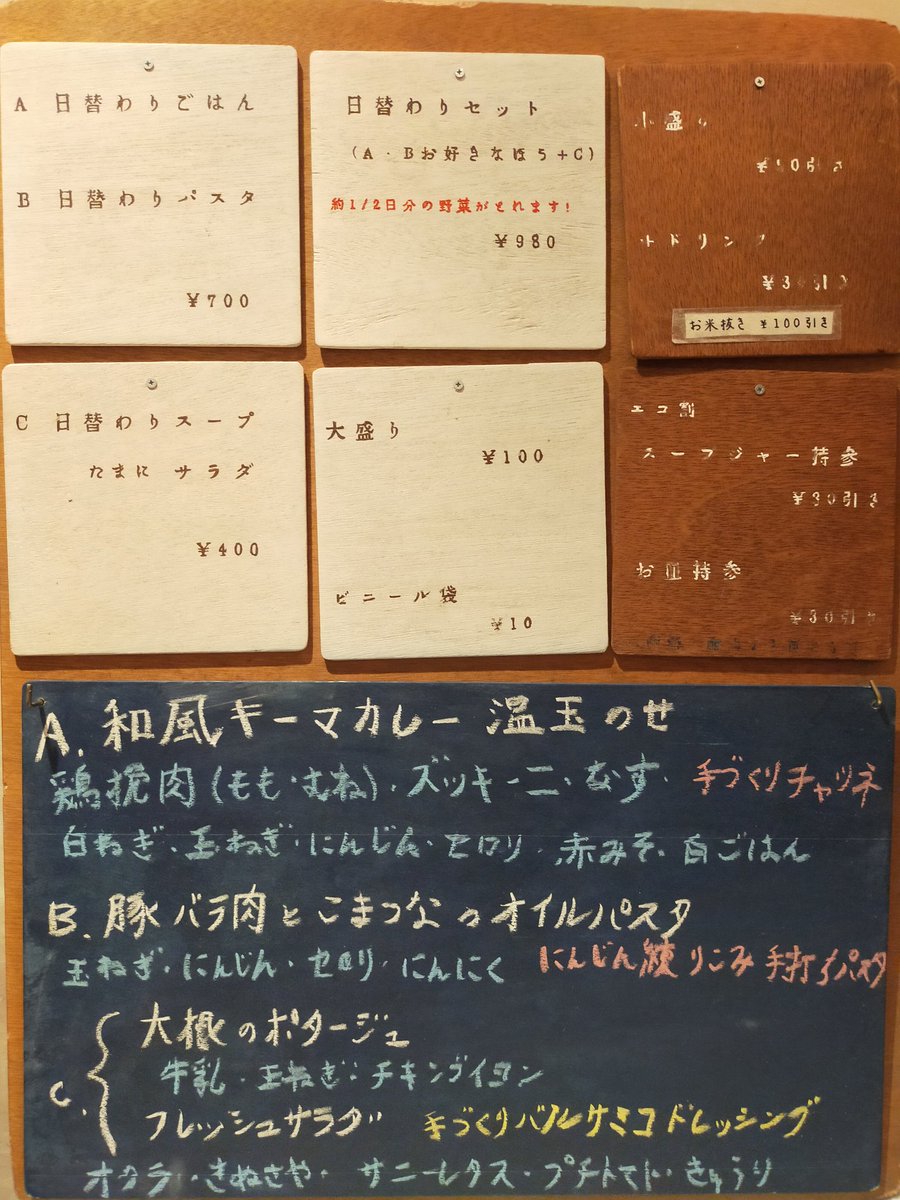 A 日替わりごはん
B 日替わりパスタ
¥700
日替わりセット
(A・Bお好きなほう+C)
約1/2日分の野菜がとれます!
¥980
小盛り
¥50引き
ドリンク
引き
お米抜き ¥100引き
C 日替わりスープ
たまに サラダ
¥400
大盛り
¥100
ビニール袋
¥10
エコ割
スープジャー持参
¥30引き
お皿持参
¥30引き
A. 和風キーマカレー 温玉のせ
鶏挽肉(もも・むね)・ズッキーニ・なす・ 手づくりチャツネ
白ねぎ・玉ねぎ・にんじん・セロリ・赤みそ・白ごはん
B. 豚バラ肉とこまつなのオイルパスタ
玉ねぎ・にんじん・セロリ・にんにく にんじん練りこみ 手打ちパスタ
C. 大根のポタージュ
牛乳・玉ねぎ・チキンブイヨン
フレッシュサラダ 手づくりバルサミコドレッシング
オクラ・きぬさや・サニーレタス・プチトマト・きゅうり